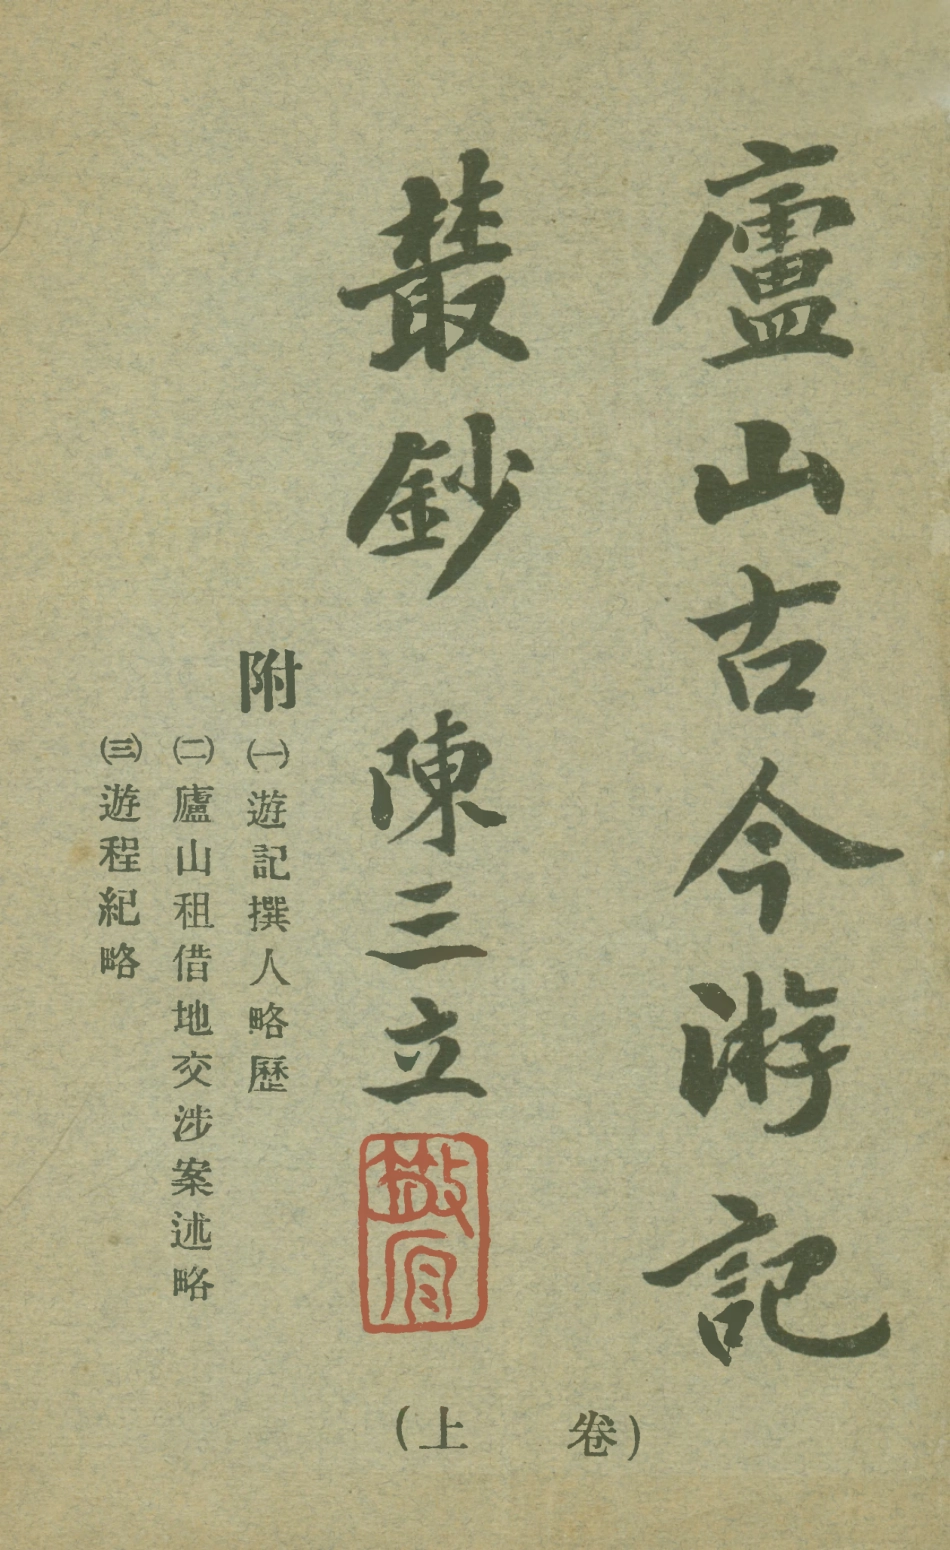 廬山古今游記
叢鈔 陳三立
散原
附
㈠遊記撰人略歷
㈡廬山租借地交涉案述略
㈢遊程紀略
(卷上)